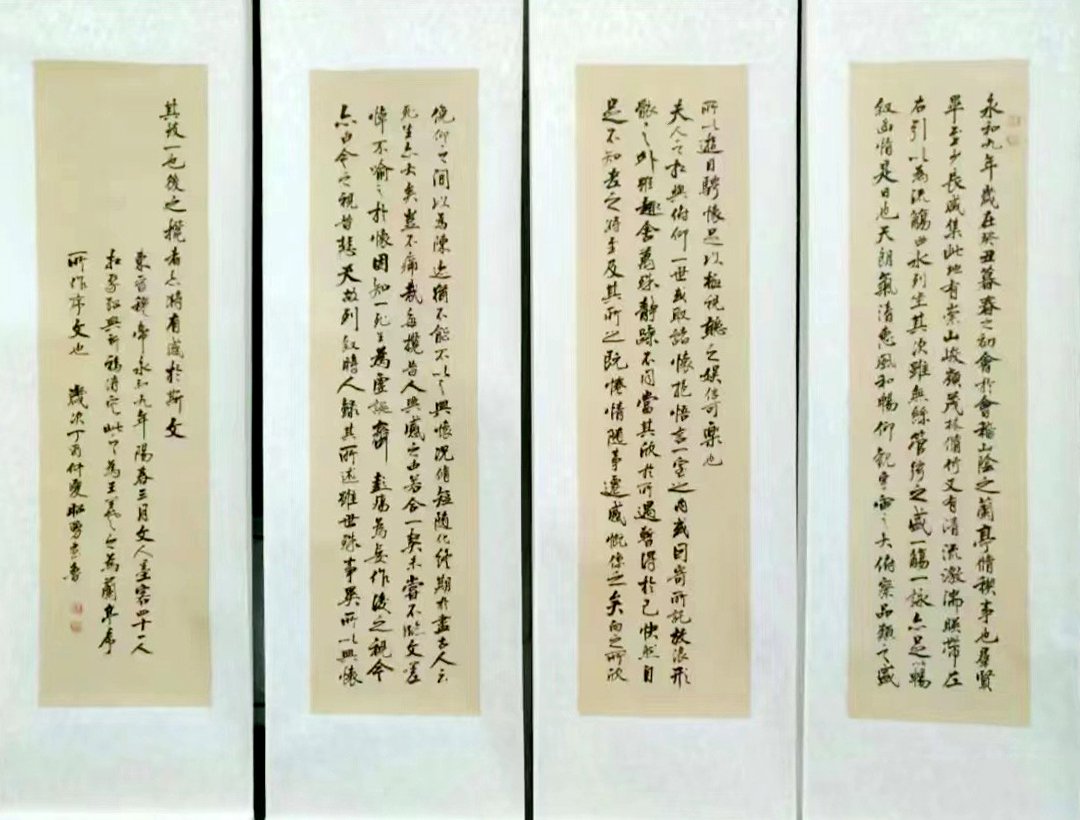 永和九年歲在癸丑暮春之初會於會稽山陰之蘭亭脩稧事也羣賢
畢至少長咸集此地有崇山峻嶺茂林脩竹又有清流激湍暎帶左
右引以為流觴曲水列坐其次雖無絲管絃之盛一觴一詠亦足以暢
叙幽情是日也天朗氣清惠風和暢仰觀宇宙之大俯察品類之盛
所以遊目騁懷足以極視聽之娛信可樂也
夫人之相與俯仰一世或取諸懷抱悟言一室之內或因寄所託放浪形
骸之外雖趣舍萬殊靜躁不同當其欣於所遇暫得於己快然自
足不知老之將至及其所之既惓情隨事遷感慨係之矣向之所欣
俛仰之間以為陳迹猶不能不以之興懷況脩短隨化終期於盡古人云
死生亦大矣豈不痛哉每攬昔人興感之由若合一契未嘗不臨文嗟
悼不喻之於懷固知一死生為虛誕齊彭殤為妄作後之視今
亦由今之視昔悲夫故列叙時人錄其所述雖世殊事異所以興懷
其致一也後之攬者亦將有感於斯文
東晉穆帝永和九年陽春三月文人墨客四十一人
於為王羲之之為蘭亭序
所作序文也 歲次丁酉仲夏